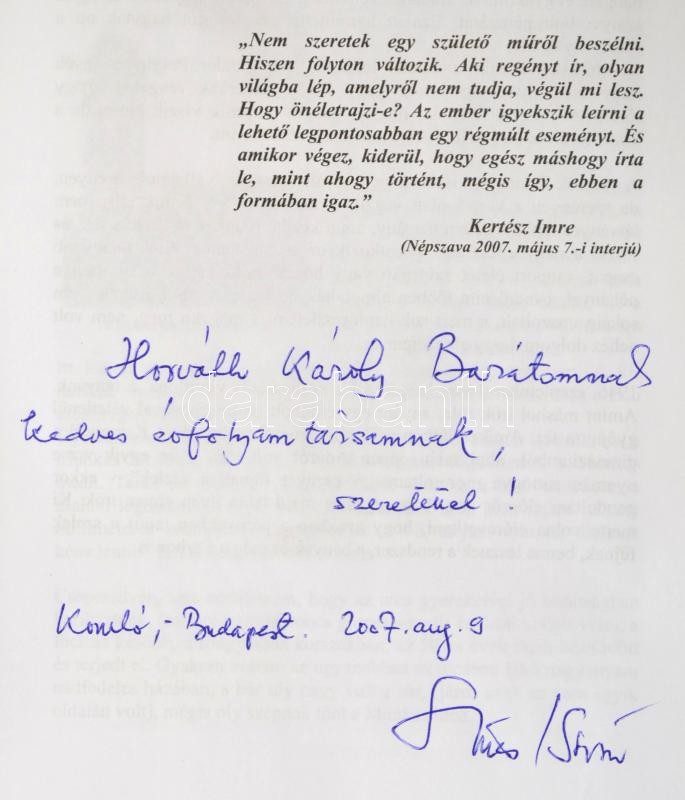 „Nem szeretek egy születő műről beszélni.
Hiszen folyton változik. Aki regényt ír, olyan
világba lép, amelyről nem tudja, végül mi lesz.
Hogy önéletrajzi-e? Az ember igyekszik leírni a
lehető legpontosabban egy régmúlt eseményt. És
amikor végez, kiderül, hogy egész máshogy írta
le, mint ahogy történt, mégis így, ebben a
formában igaz.”
Kertész Imre
(Népszava 2007. május 7.-i interjú)
Horváth Károly Barátomnak
darabanth
kedves évfolyamtársamnak,
szeretettel!
Komló,- Budapest. 2007. aug. 9
István